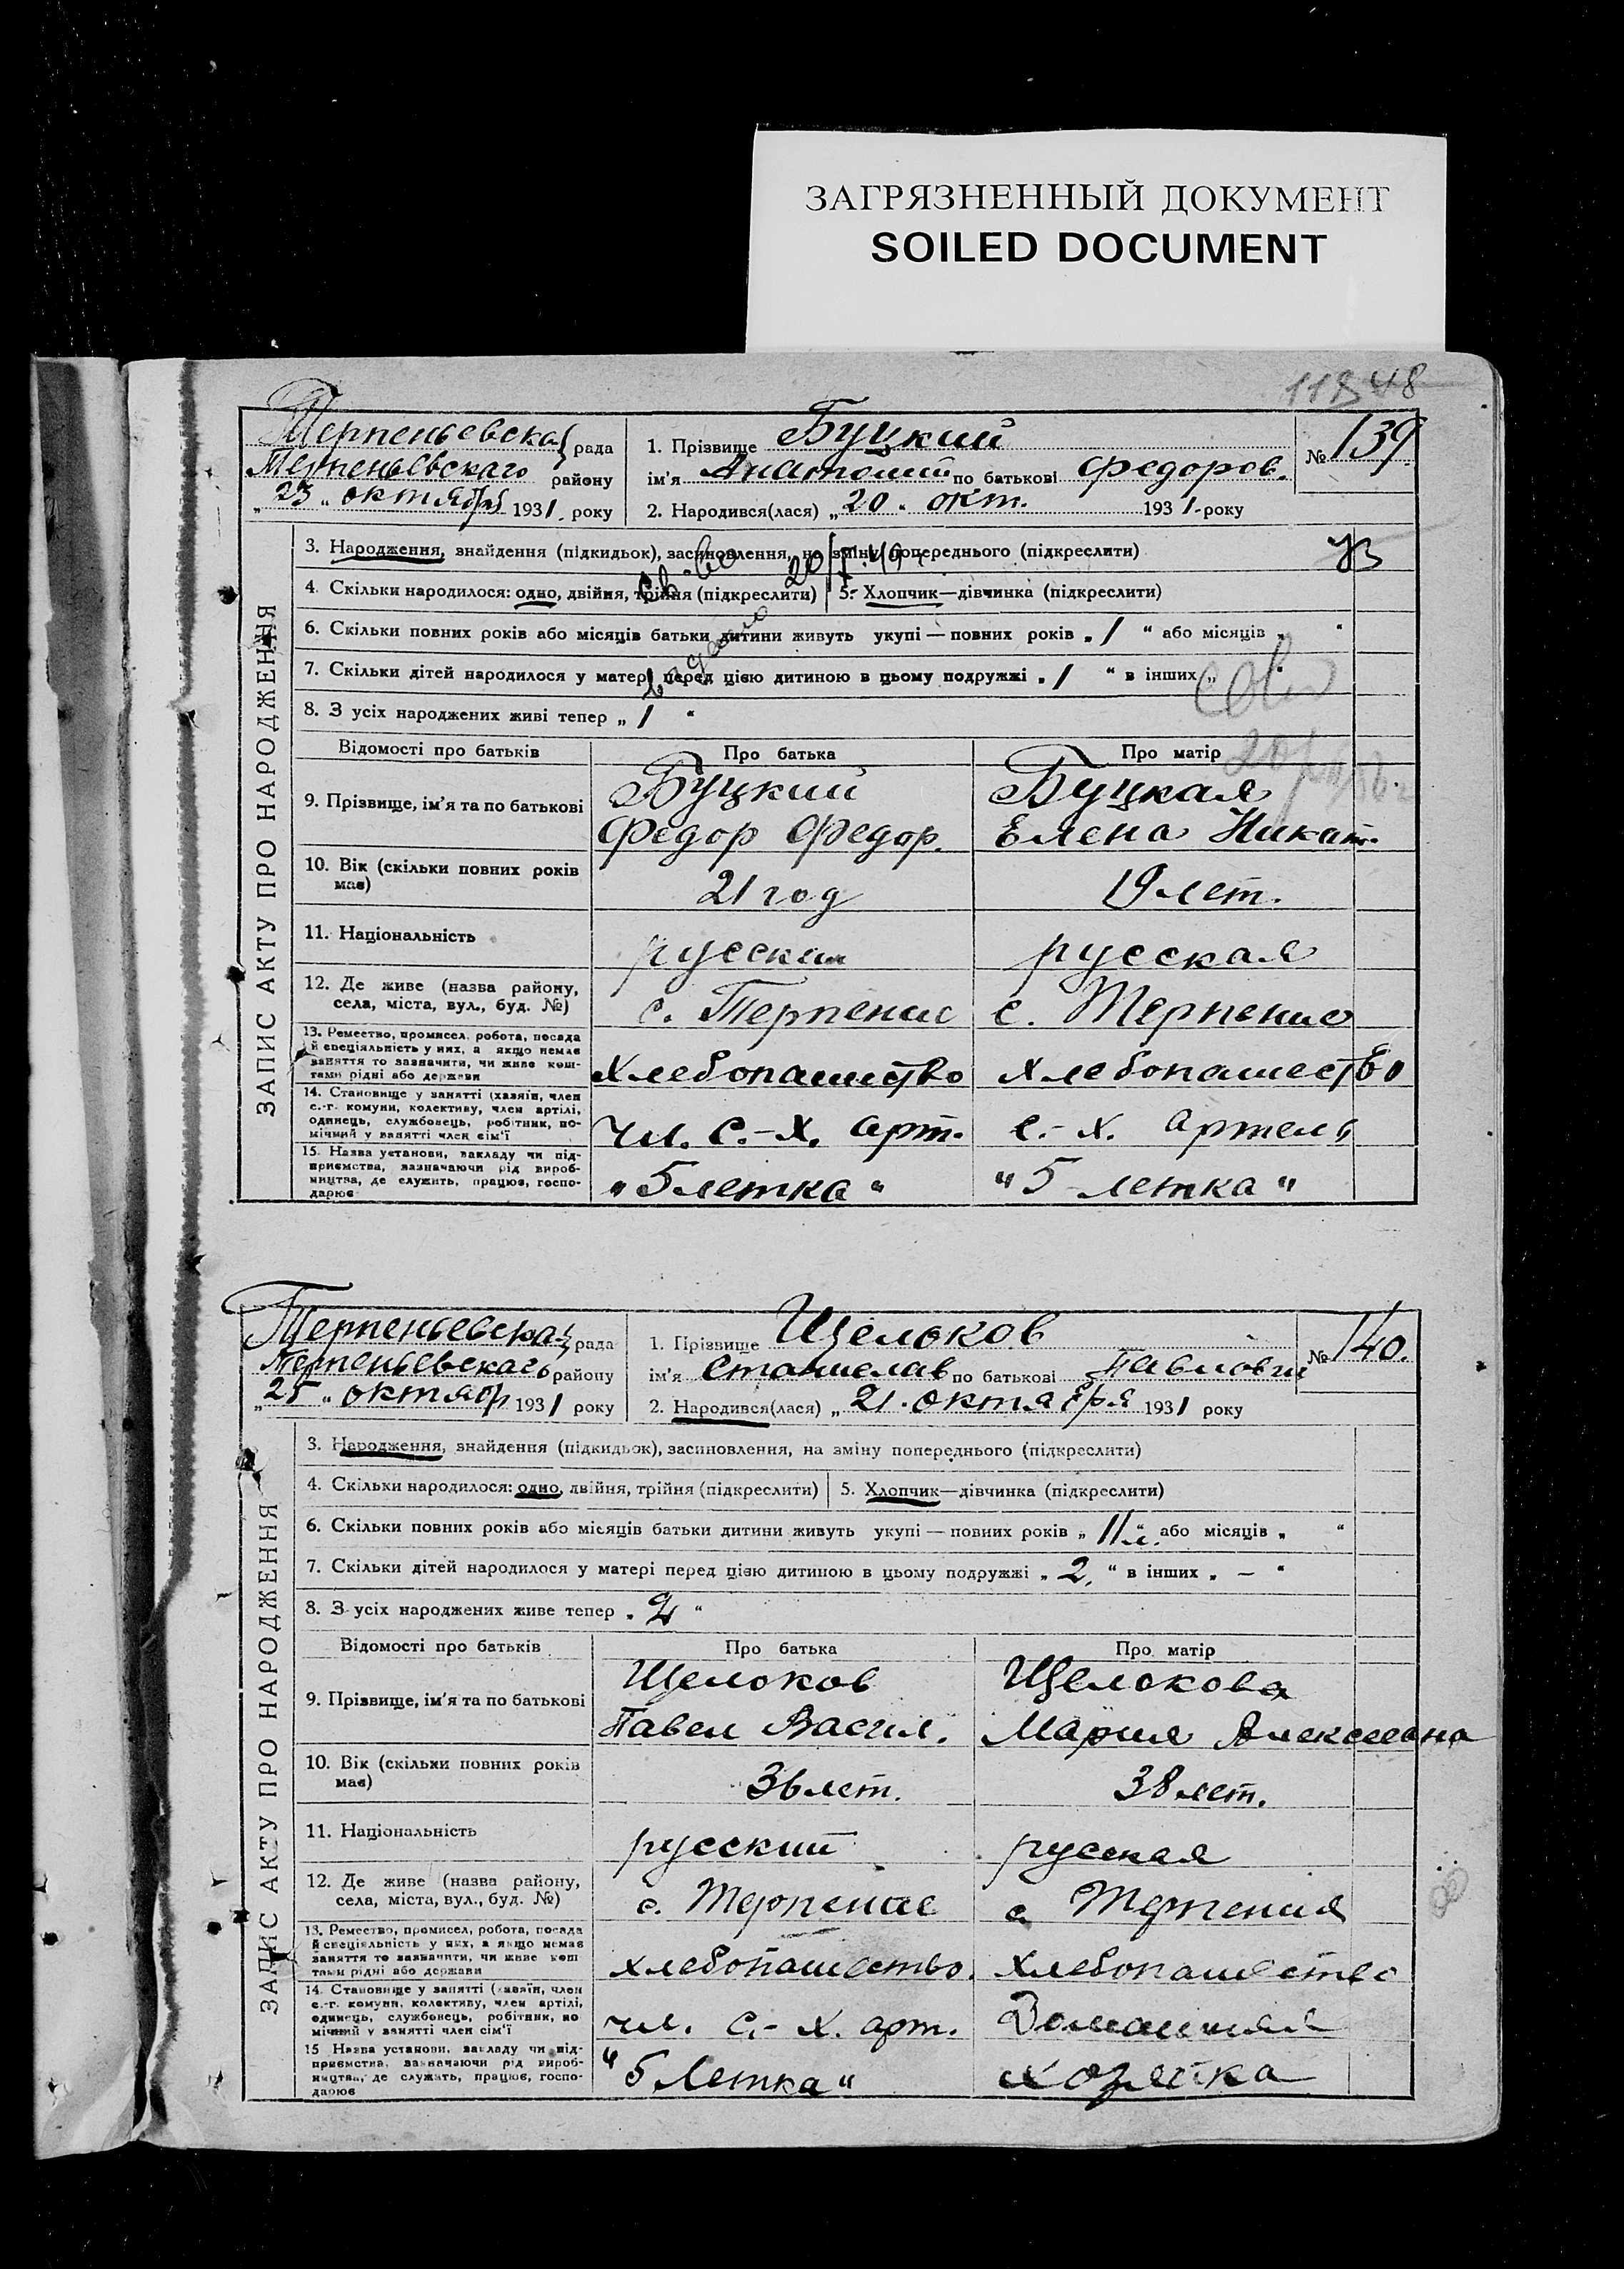 ЗАГРЯЗНЕННЫЙ ДОКУМЕНТ
SOILED DOCUMENT
48
Терпеньевская рада
Терпеньевскаго району
„23„ октября 1931. року
1. Прізвище Буцкий
ім'я Анатолий по батькові Федоров.
2. Народився(лася) „20„ окт. 1931. року
№ 139.
ЗАПИС АКТУ ПРО НАРОДЖЕННЯ
3. Народження, знайдення (підкидьок), засиновлення, на зміну попереднього (підкреслити)
4. Скільки народилося: одно, двійня, трійня (підкреслити) 5. Хлопчик—дівчинка (підкреслити)
6. Скільки повних років або місяців батьки дитини живуть укупі — повних років „1 “ або місяців „ “
7. Скільки дітей народилося у матері перед цією дитиною в цьому подружжі „1 “ в інших „ “
8. З усіх народжених живі тепер „1 “
Відомості про батьків Про батька Про матір
9. Прізвище, ім'я та по батькові
Буцкий Буцкая
Федор Федор. Елена
10. Вік (скільки повних років має) 21 год 19 лет.
11. Національність русский русская
12. Де живе (назва району, села, міста, вул., буд. №) с. Терпение с. Терпение
13. Ремество, промисел, робота, посада
й спеціяльність у них, а якщо немає
заняття то зазначити, чи живе кош-
тами рідні або держави
Хлебопашество хлебопашество
14. Становище у занятті (хазяїн, член
с.-г. комуни, колективу, член артілі,
одинець, службовець, робітник, по-
мічний у занятті член сім'ї
чл. с.-х. арт. с.-х. артель
15. Назва установи, закладу чи під-
приємства, зазначаючи рід вироб-
ництва, де служить, працює, госпо-
дарює
„5 летка“ "5 летка"
Терпеньевская рада
Терпеньевскаго району
„25„ октябр 1931 року
1. Прізвище Щелоков
ім'я Станислав по батькові Павлович
2. Народився(лася) „21. октября 1931 року
№ 140.
ЗАПИС АКТУ ПРО НАРОДЖЕННЯ
3. Народження, знайдення (підкидьок), засиновлення, на зміну попереднього (підкреслити)
4. Скільки народилося: одно, двійня, трійня (підкреслити) 5. Хлопчик—дівчинка (підкреслити)
6. Скільки повних років або місяців батьки дитини живуть укупі — повних років „11 л.“ або місяців „ “
7. Скільки дітей народилося у матері перед цією дитиною в цьому подружжі „2.“ в інших „ – “
8. З усіх народжених живе тепер „2“
Відомості про батьків Про батька Про матір
9. Прізвище, ім'я та по батькові
Щелоков Щелокова
Павел Васил. Мария
10. Вік (скільки повних років має) 36 лет. 38 лет.
11. Національність русский русская
12. Де живе (назва району, села, міста, вул., буд. №) с. Терпение с. Терпения
13. Ремество, промисел, робота, посада
й спеціяльність у них, а якщо немає
заняття то зазначити, чи живе кош
тами рідні або держави
хлебопашество. хлебопашество
14. Становище у занятті (хазяїн, член
с.-г. комуни, колективу, член артілі,
одинець, службовець, робітник, по
мічний у занятті член сім'ї
чл. с.-х. арт. Домашняя
15 Назва установи, закладу чи під-
приємства, зазначаючи рід вироб-
ництва, де служить, працює, госпо-
дарює
"5 Летка" хозяйка